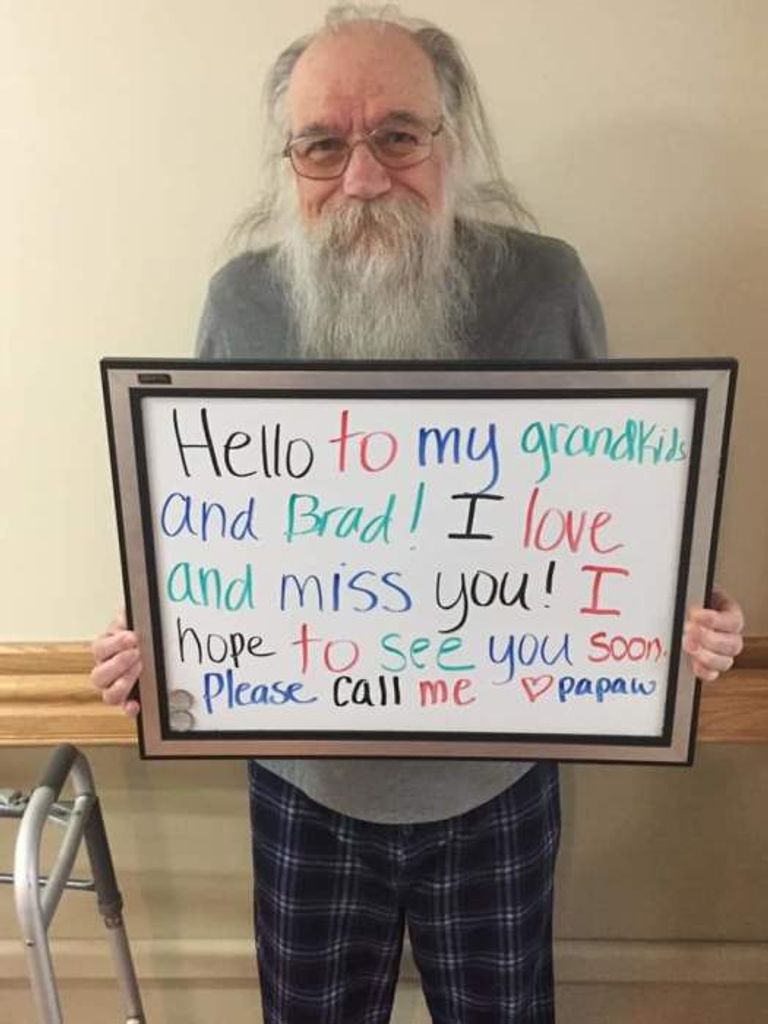 Hello to my grandkids
and Brad! I love
and miss you! I
hope to see you soon.
Please call me ♡ papaw